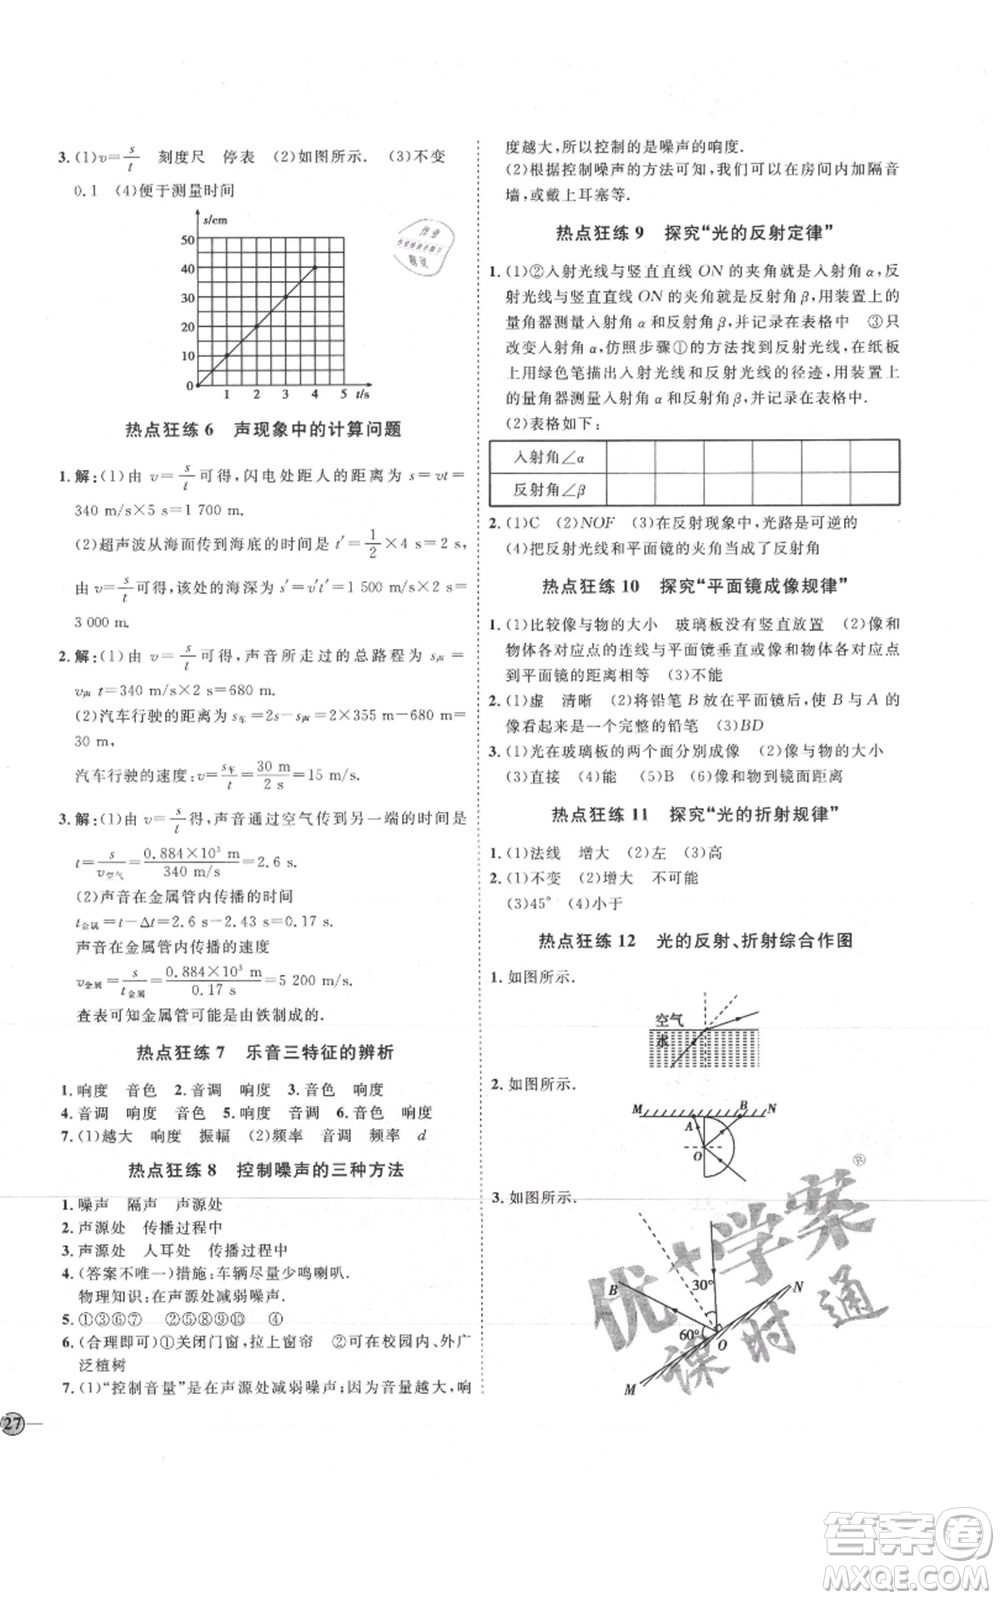 3. (1)v=s/t　刻度尺　停表　(2)如图所示.　(3)不变
0.1　(4)便于测量时间
s/cm
50
40
30
20
10
0
1 2 3 4 5 t/s
热点狂练 6　声现象中的计算问题
1. 解:(1)由 v=s/t可得,闪电处距人的距离为 s=vt=
340 m/s×5 s=1 700 m.
(2)超声波从海面传到海底的时间 t′=1/2×4 s=2 s,
由 v=s/t可得,该处的海深为 s′=v′t′=1 500 m/s×2 s=
3 000 m.
2. 解:(1)由 v=s/t可得,声音所走过的总路程为 s声=
v声 t=340 m/s×2 s=680 m.
(2)汽车行驶的距离为 s车=2s-s声=2×355 m-680 m=
30 m,
汽车行驶的速度:v=s车/t=30 m/2 s=15 m/s.
3. 解:(1)由 v=s/t得,声音通过空气传到另一端的时间是
t=s/v空气=0.884×10³ m/340 m/s=2.6 s.
(2)声音在金属管内传播的时间
t金属=t-Δt=2.6 s-2.43 s=0.17 s.
声音在金属管内传播的速度
v金属=s/t金属=0.884×10³ m/0.17 s=5 200 m/s.
查表可知金属管可能是由铁制成的.
热点狂练 7　乐音三特征的辨析
1. 响度　音色　2. 音调　响度　3. 音色　响度
4. 音调　响度　音色　5. 响度　音调　6. 音色　响度
7. (1)越大　响度　振幅　(2)频率　音调　频率　d
热点狂练 8　控制噪声的三种方法
1. 噪声　隔声　声源处
2. 声源处　传播过程中
3. 声源处　人耳处　传播过程中
4. (答案不唯一)措施:车辆尽量少鸣喇叭.
物理知识:在声源处减弱噪声.
5. ①③⑥⑦　②⑤⑧⑩　④
6. (合理即可)①关闭门窗,拉上窗帘　②可在校园内、外广
泛植树
7. (1)“控制音量”是在声源处减弱噪声;因为音量越大,响
27
度越大,所以控制的是噪声的响度.
(2)根据控制噪声的方法可知,我们可以在房间内加隔音
墙,或戴上耳塞等.
热点狂练 9　探究“光的反射定律”
1. (1)②入射光线与竖直直线 ON 的夹角就是入射角 α,反
射光线与竖直直线 ON 的夹角就是反射角 β,用装置上的
量角器测量入射角 α 和反射角 β,并记录在表格中　③只
改变入射角 α,仿照步骤①的方法找到反射光线,在纸板
上用绿色笔描出入射光线和反射光线的径迹,用装置上
的量角器测量入射角 α 和反射角 β,并记录在表格中.
(2)表格如下:
入射角∠α
反射角∠β
2. (1)C　(2)NOF　(3)在反射现象中,光路是可逆的
(4)把反射光线和平面镜的夹角当成了反射角
热点狂练 10　探究“平面镜成像规律”
1. (1)比较像与物的大小　玻璃板没有竖直放置　(2)像和
物体各对应点的连线与平面镜垂直　像和物体各对应点
到平面镜的距离相等　(3)不能
2. (1)虚　清晰　(2)将铅笔 B 放在平面镜后,使 B 与 A 的
像看起来是一个完整的铅笔　(3)BD
3. (1)光在玻璃板的两个面分别成像　(2)像与物的大小
(3)直接　(4)能　(5)B　(6)像和物到镜面距离
热点狂练 11　探究“光的折射规律”
1. (1)法线　增大　(2)左　(3)高
2. (1)不变　(2)增大　不可能
(3)45°　(4)小于
热点狂练 12　光的反射、折射综合作图
1. 如图所示.
空气
水
2. 如图所示.
M B N
A
O
3. 如图所示.
B
30°
N
60°
O
M
优+学案
®
课时通
答案卷
MXQE.COM
作业